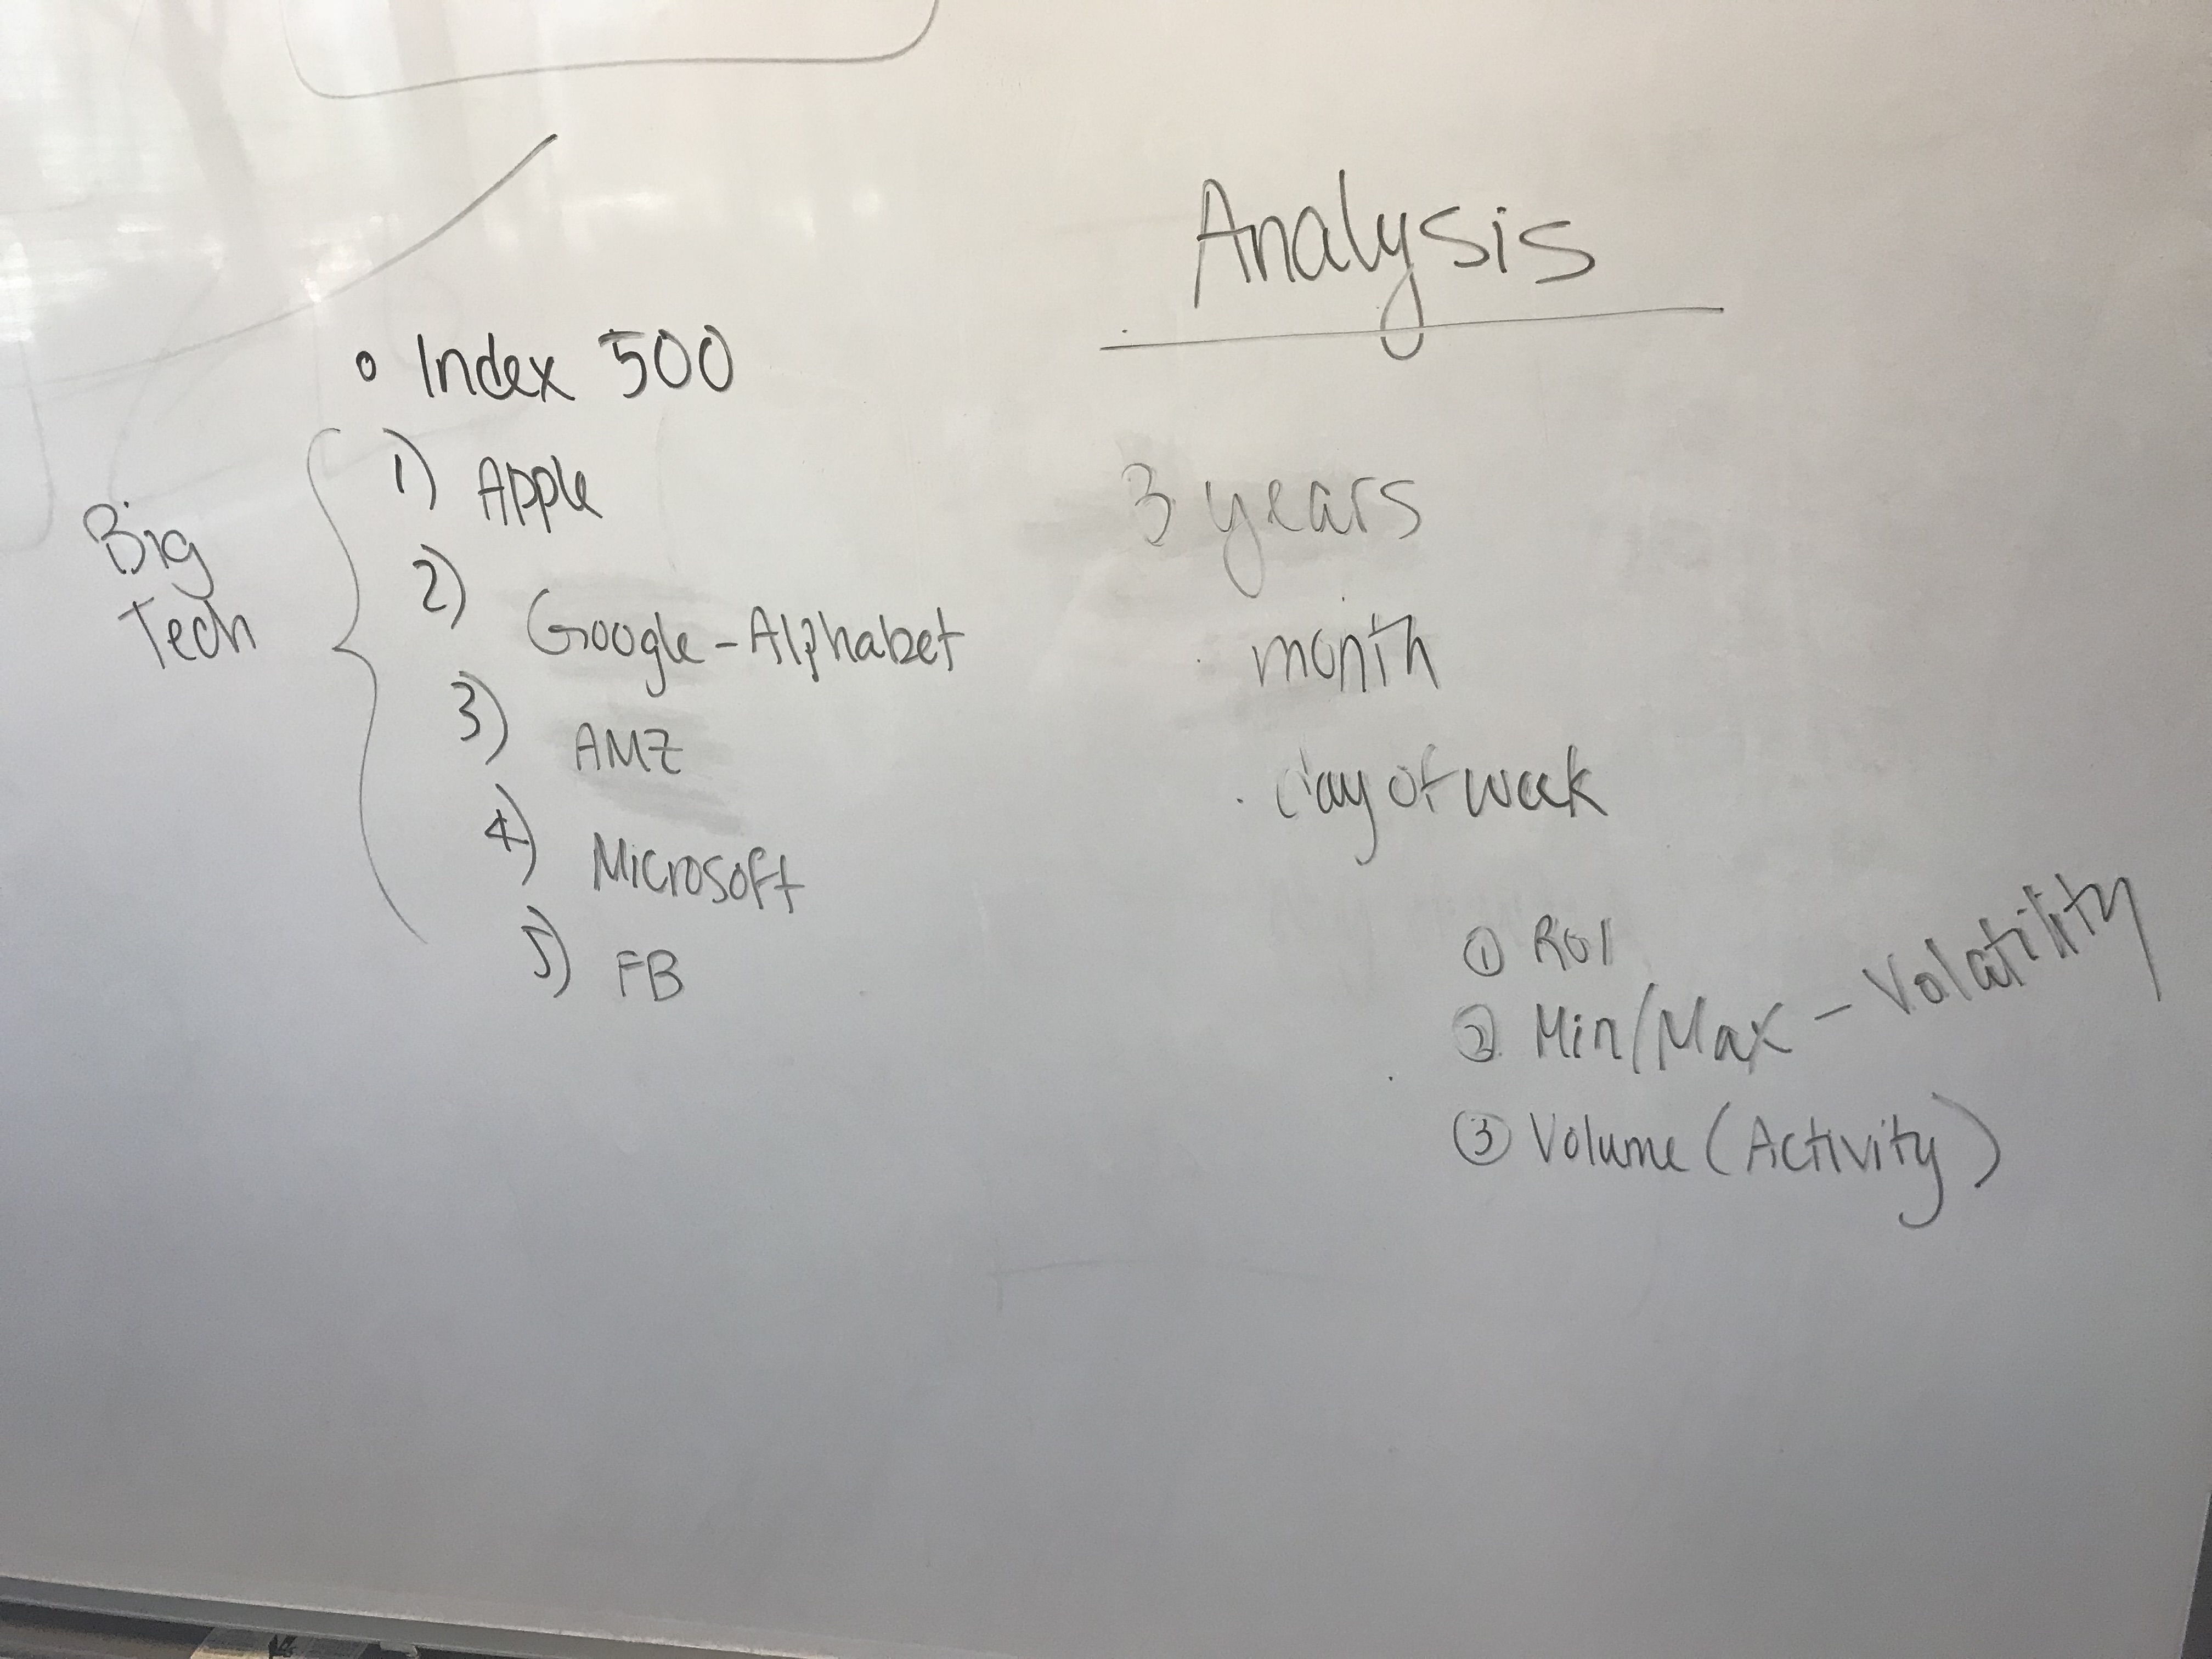 Analysis
° Index 500
Big
Tech
1) Apple
2) Google-Alphabet
3) AMZ
4) Microsoft
5) FB
3 years
month
day of week
① ROI
② Min/Max - Volatility
③ Volume (Activity)